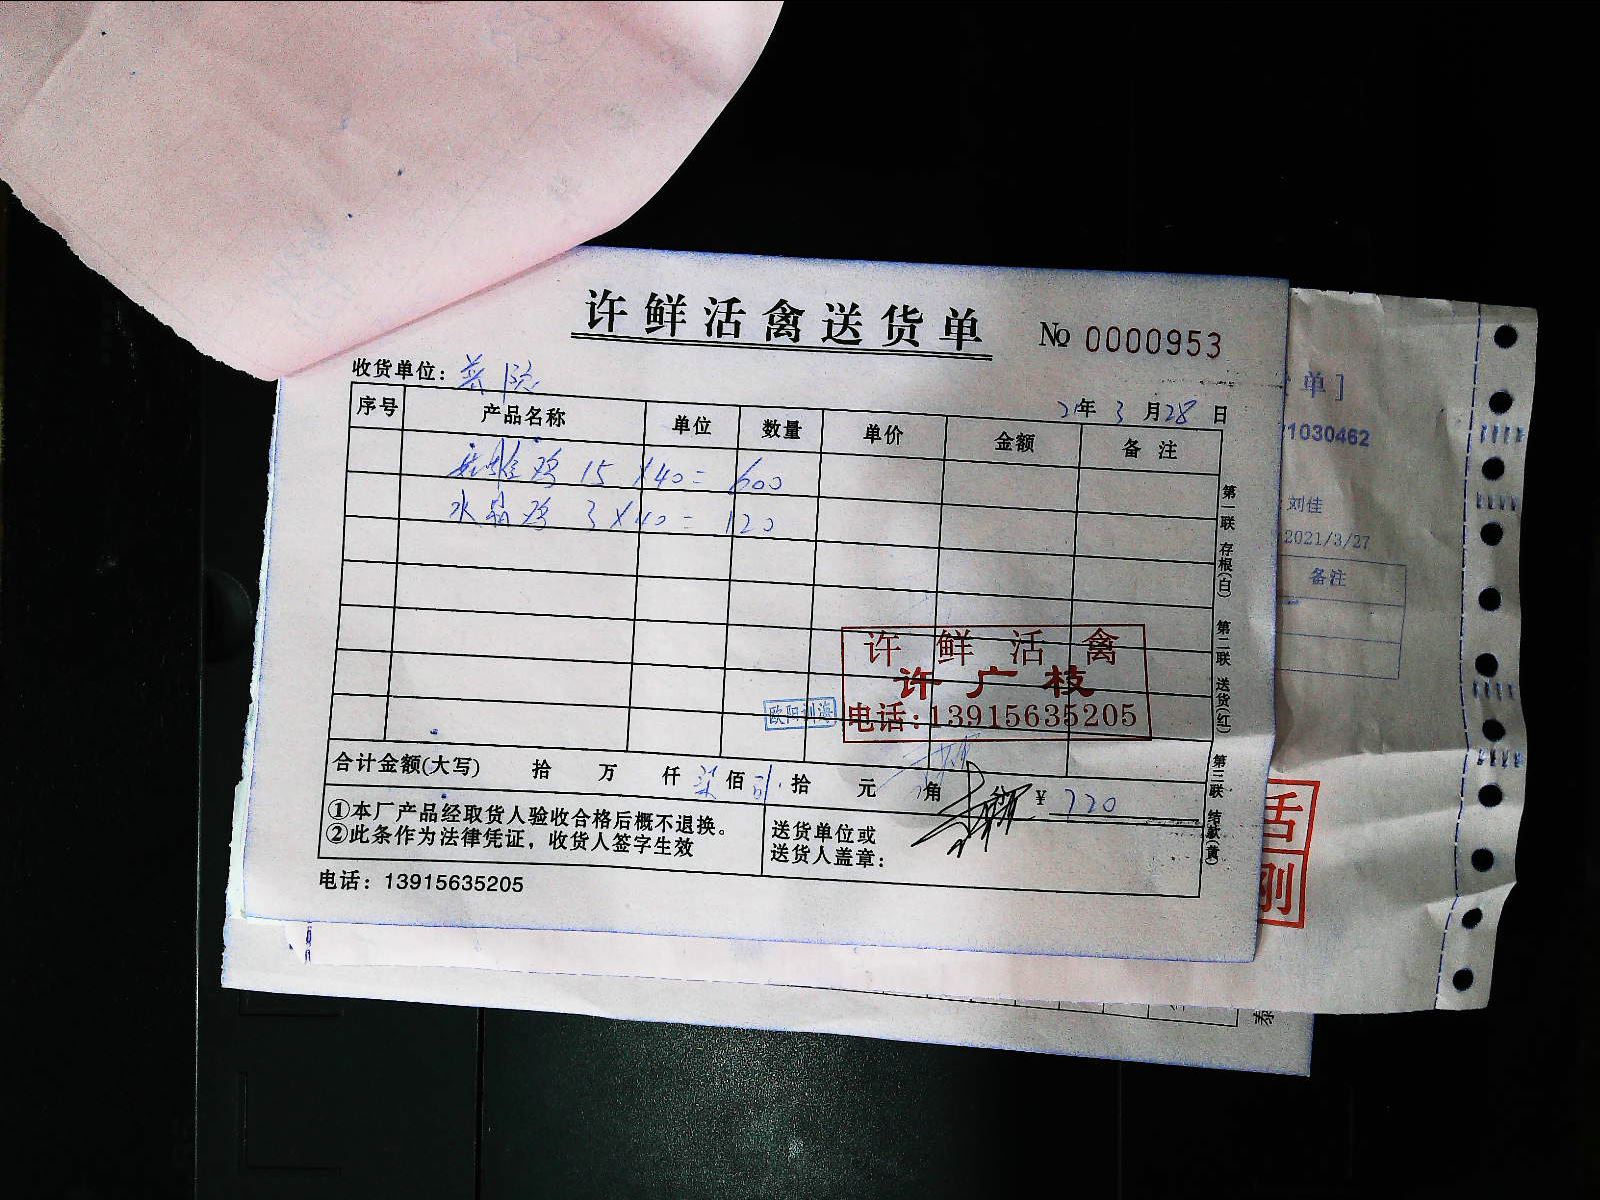 许鲜活禽送货单
No 0000953
收货单位：
21年 3 月 28 日
序号 产品名称 单位 数量 单价 金额 备 注
鸡 15 × 40 = 600
水晶鸡 3 × 40 = 120
第一联 存根(白) 第二联 送货(红) 第三联 结款(黄)
许 鲜 活 禽
许广枝
电话:13915635205
欧阳
合计金额(大写) 拾 万 仟 柒 佰 贰 拾 元 角 ¥ 720
①本厂产品经取货人验收合格后概不退换。
②此条作为法律凭证，收货人签字生效
送货单位或
送货人盖章：
电话：13915635205
单]
1030462
刘佳
2021/3/27
备注
活
刚